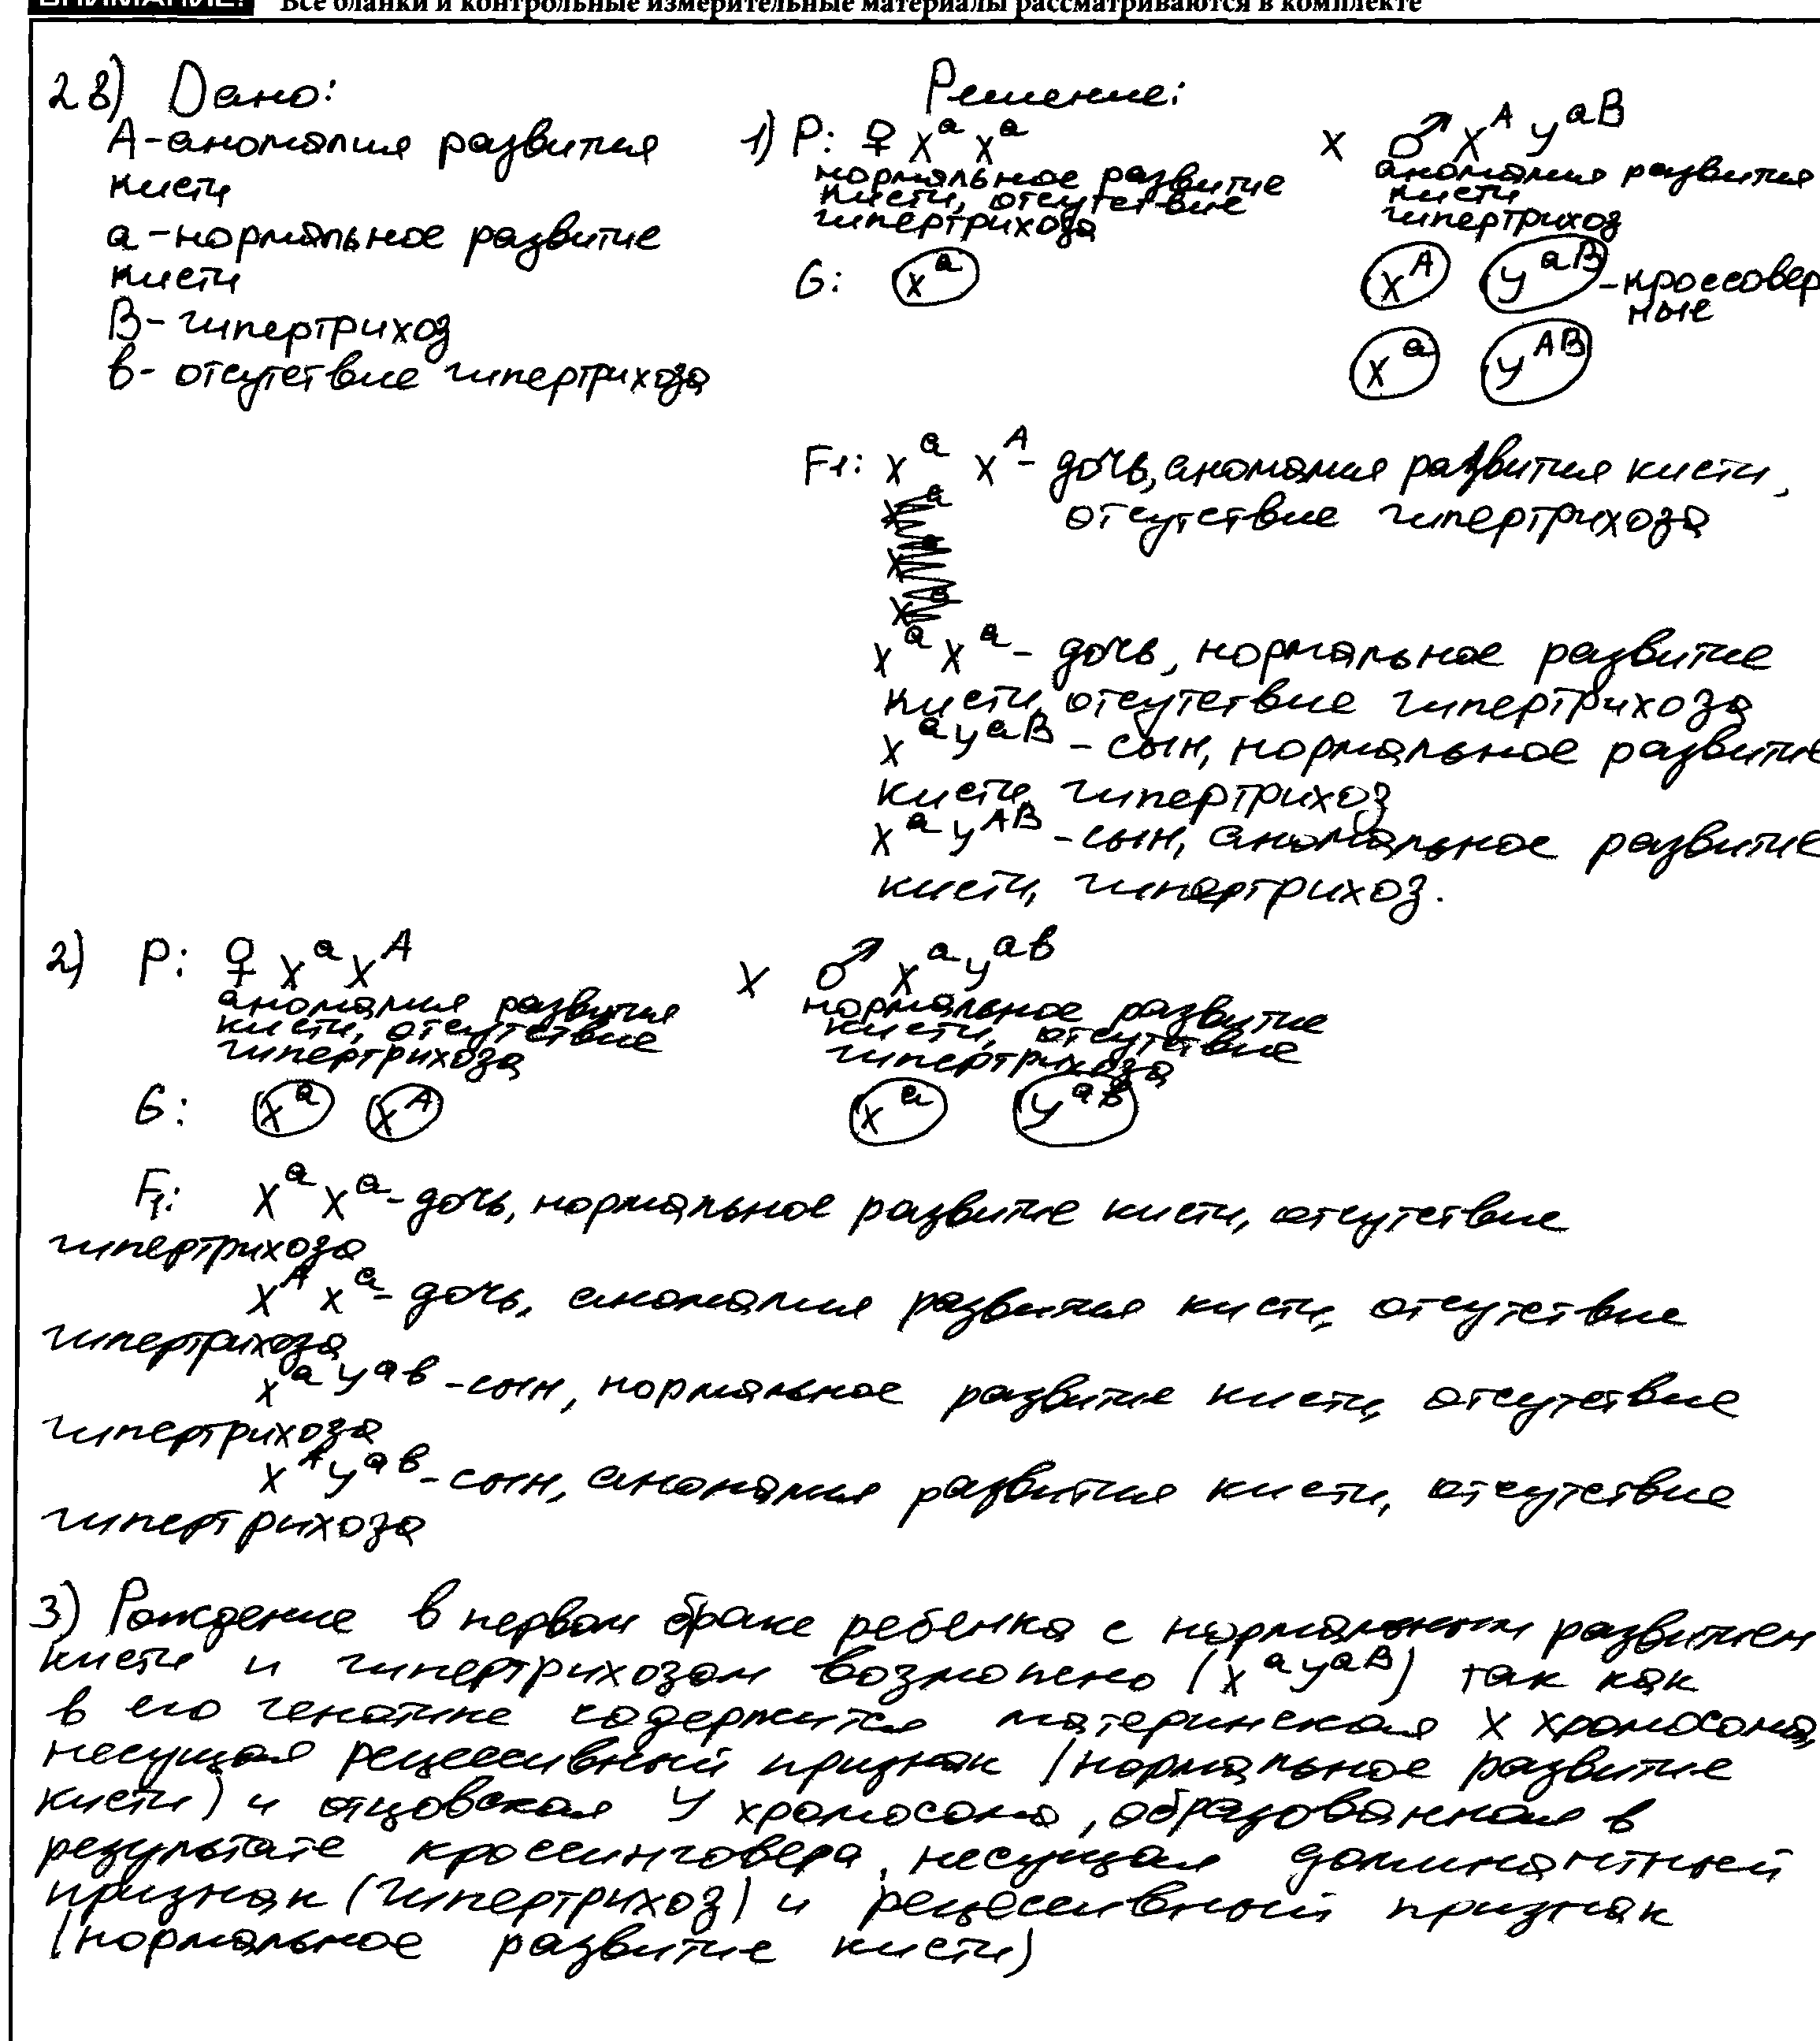 ВНИМАНИЕ! Все бланки и контрольные измерительные материалы рассматриваются в комплекте
28) Дано:
A-аномалия развития
кисти
a-нормальное развитие
кисти
B- гипертрихоз
b- отсутствие гипертрихоза
Решение:
1) P: ♀ X^a X^a x ♂ X^A Y^aB
нормальное развитие
кисти, отсутствие
гипертрихоза
аномалия развития
кисти
гипертрихоз
G: X^a X^A Y^aB - кроссовер
ные
X^a Y^AB
F1: X^a X^A - дочь, аномалия развития кисти,
отсутствие гипертрихоза
X^a X^a - дочь, нормальное развитие
кисти, отсутствие гипертрихоза
X^a Y^aB - сын, нормальное развитие
кисти, гипертрихоз
X^a Y^AB - сын, аномальное развитие
кисти, гипертрихоз.
2) P: ♀ X^a X^A x ♂ X^a Y^ab
аномалия развития
кисти, отсутствие
гипертрихоза
нормальное развитие
кисти, отсутствие
гипертрихоза
G: X^a X^A X^a Y^ab
F1: X^a X^a - дочь, нормальное развитие кисти, отсутствие
гипертрихоза
X^A X^a - дочь, аномалия развития кисти, отсутствие
гипертрихоза
X^a Y^ab - сын, нормальное развитие кисти, отсутствие
гипертрихоза
X^A Y^ab - сын, аномалия развития кисти, отсутствие
гипертрихоза
3) Рождение в первом браке ребёнка с нормальным развитием
кисти и гипертрихозом возможно (X^a Y^aB) так как
в его генотипе содержится материнская X хромосома,
несущая рецессивный признак (нормальное развитие
кисти) и отцовская Y хромосома, образованная в
результате кроссинговера, несущая доминантный
признак (гипертрихоз) и рецессивный признак
(нормальное развитие кисти)